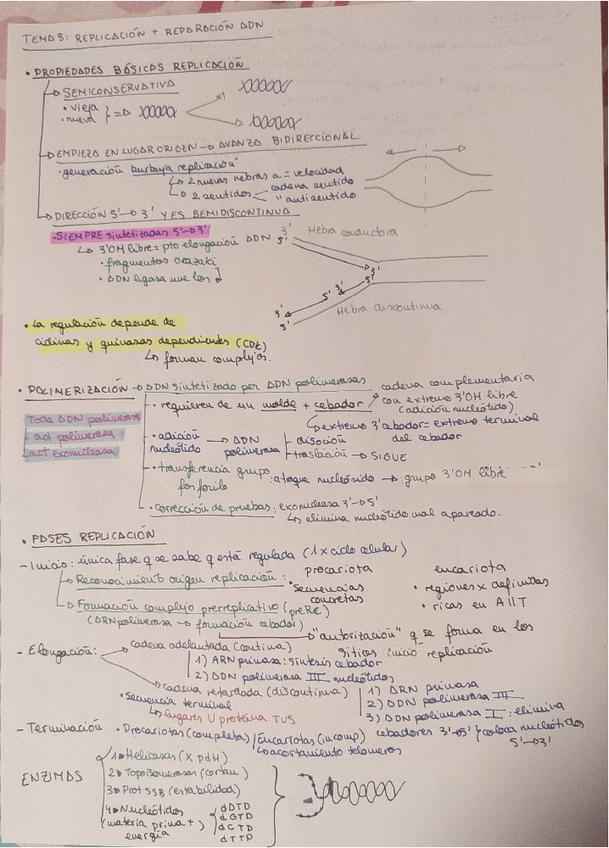 TEMA 8: REPLICACIÓN + REPARACIÓN ADN
• PROPIEDADES BÁSICAS REPLICACIÓN
→ SEMICONSERVATIVA
• vieja
• nueva
→ EMPIEZA EN LUGAR ORIGEN → AVANZA BIDIRECCIONAL
• generación burbuja replicación
→ 2 nuevas hebras a = velocidad
→ 2 sentidos cadena sentido
" antisentido
→ DIRECCIÓN 5'→3' Y ES SEMIDISCONTINUA
• SIEMPRE sintetizadas 5'→3'
→ 3'OH libre = pto elongación ADN
• fragmentos okazaki
• ADN ligasa une los
3'
5'
Hebra conductora
3'
5'
5'
3'
3'
5'
Hebra discontinua
• La regulación depende de
ciclinas y quinasas dependientes (CDK)
→ forman complejos.
• POLIMERIZACIÓN → ADN sintetizado por ADN polimerasas
Toda ADN polimerasa
act polimerasa
act exonucleasa
• requieren de un molde + cebador
cadena complementaria
con extremo 3'OH libre
(adición nucleótido)
→ extremo 3' cebador = extremo terminal
del cebador
• adición
nucleótido → ADN
polimerasa
disoción
traslación → SIGUE
• transferencia grupo
fosforilo : ataque nucleósido → grupo 3'OH libre
• corrección de pruebas: exonucleasa 3'→5'
→ elimina nucleótido mal apareado.
• FASES REPLICACIÓN
- Inicio: única fase q se sabe q está regulada (1 x ciclo celular)
→ Reconocimiento origen replicación:
procariota
• secuencias
concretas
eucariota
• regiones x definidas
• ricas en A||T
→ Formación complejo prerreplicativo (preRC)
(ARN polimerasa → formación cebador)
→ "autorización" q se forma en los
sitios inicio replicación
- Elongación:
cadena adelantada (continua)
1) ARN primasa: síntesis cebador
2) ADN polimerasa III nucleótidos
cadena retardada (discontinua)
1) ARN primasa
2) ADN polimerasa III
3) ADN polimerasa I: elimina
cebadores 3'→5' y coloca nucleótidos
5'→3'
• secuencia
terminal
→ lugares U proteína TUS
- Terminación • Procariotas (completa) / Eucariotas (incomp)
→ acortamiento telómeros
ENZIMAS
1→ Helicasas (x pdH)
2→ Topoisomerasas (cortan)
3→ Prot SSB (estabilidad)
4→ Nucleótidos
(materia prima +
energía)
dATP
dGTP
dCTP
dTTP